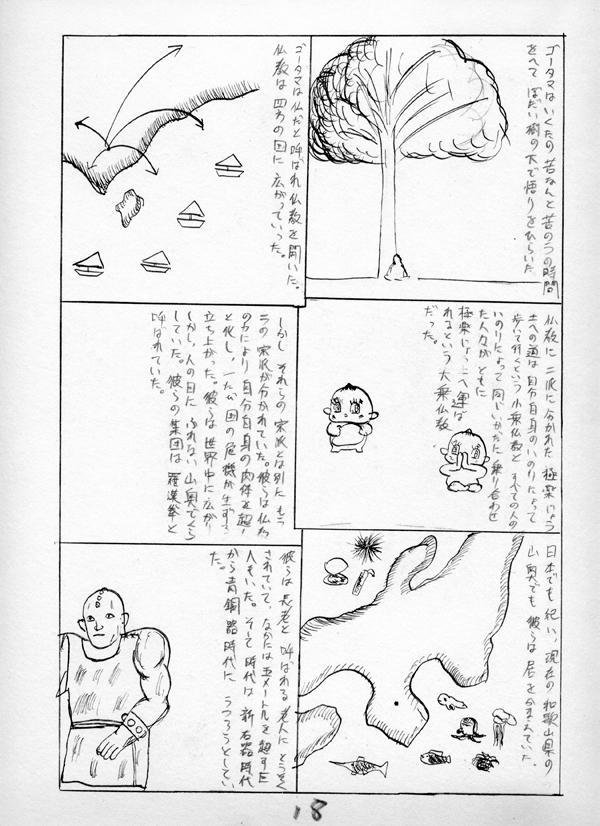 ゴータマはいくたの苦なんと苦のうの時間
をへて ぼだい樹の下で悟りをひらいた
ゴータマは仏だと呼ばれ仏教を開いた。
仏教は四方の国に広がっていった。
仏教は二派に分かれた 極楽じょう
土への道は自分自身のいのりによって
歩って行くという小乗仏教と すべての人の
いのりによって同じいかだに乗り合わせ
た人々がともに
極楽じょう土へ運ば
れるという大乗仏教
だった。
しかし それらの宗派とは別に もう
一つの宗派が分かれていた。彼らは仏
の力により自分自身の肉体を超人
と化し、一たん国の危機が生ずる
立ち上がった。彼らは世界中に広がり
しかし、人の目にふれない山奥でくら
していた。彼らの集団は 羅漢拳と
呼ばれていた。
日本でも紀い、現在の和歌山県の
山奥でも彼らは居をかまえていた。
彼らは長老と呼ばれる老人にとうそく
されていて、なかには五メートルを超す巨
人もいた。そして時代は新石器時代
から青銅器時代に うつろうとしてい
た。
18